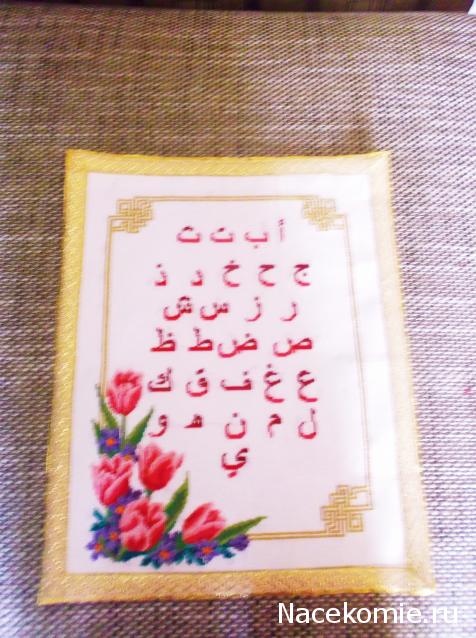 أ ب ت ث
ج ح خ د ذ
ر ز س ش
ص ض ط ظ
ع غ ف ق ك
ل م ن ه و
ي
Nacekomie.ru